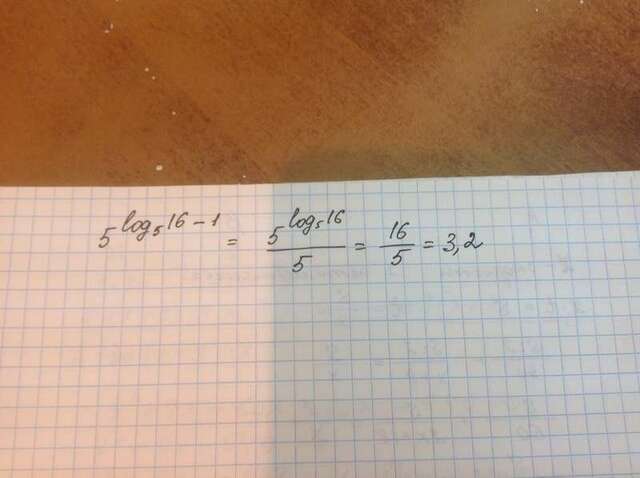 5^{log_5 16 - 1} = \frac{5^{log_5 16}}{5} = \frac{16}{5} = 3,2